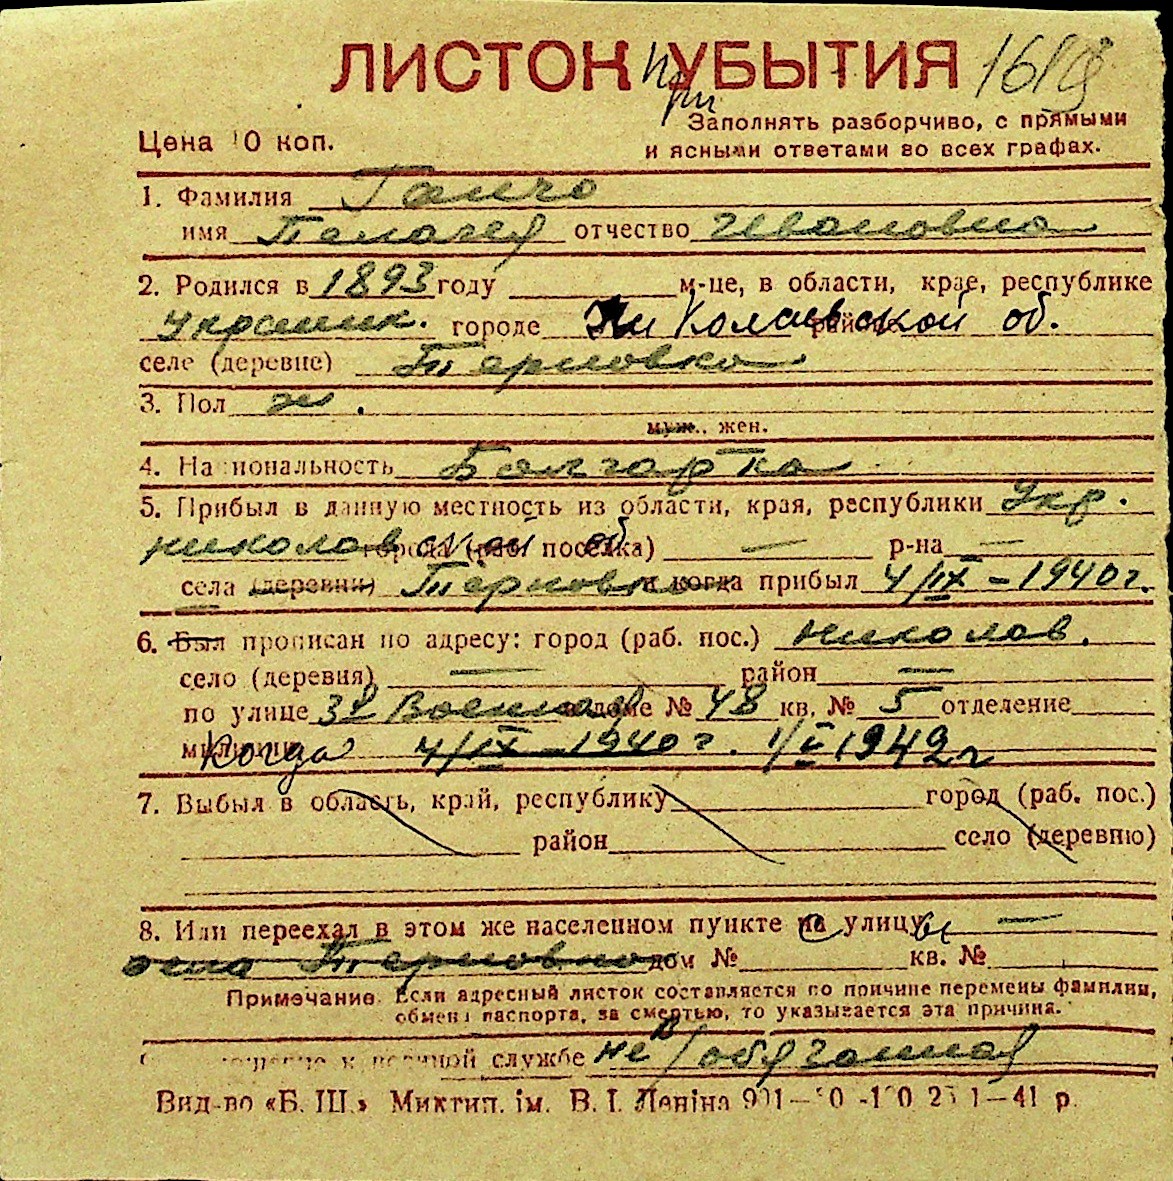 ЛИСТОК УБЫТИЯ
при
Заполнять разборчиво, с прямыми
Цена 10 коп. и ясными ответами во всех графах.
1. Фамилия Ганчо
имя Пелагея отчество Ивановна
2. Родился в 1893 году м-це, в области, крае, республике
Украинк. городе Николаевской об.
селе (деревне) Терновка
3. Пол ж.
муж., жен.
4. Национальность Болгарка
5. Прибыл в данную местность из области, края, республики Укр.
Николаевской об города (раб. поселка) — р-на —
села (деревни) Терновка и когда прибыл 4/IX – 1940 г.
6. Был прописан по адресу: город (раб. пос.) Николаев.
село (деревня) — район —
по улице 3я Военная в доме № 48 кв. № 5 отделение
милиции Когда 4/IX – 1940 г. 1942 г
7. Выбыл в область, край, республику город (раб. пос.)
район село (деревню)
8. Или переехал в этом же населенном пункте с улицы —
села Терновка дом № кв. №
Примечание. Если адресный листок составляется по причине перемены фамилии,
обмена паспорта, за смертью, то указывается эта причина.
к военной службе не в/обязанная
Вид-во «Б. Ш.» Миктип. ім. В. І. Леніна 41 р.